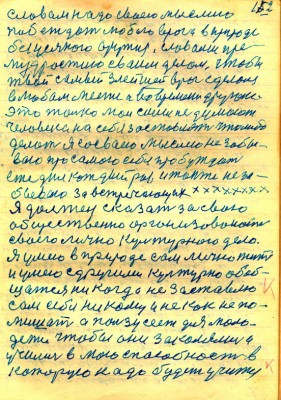 152
словам надо своею мыслию
победит любого врага в природе
без всякого оружия. словами пре
мудростию своими делом, чтобы
твой самый злейшей враг сделан
в любам месте и во время другом.
Это толко мои силы не думают
человека на себя заставит что либо
делат Я со своею мыслию не забы
ваю про самого себя пробуждат
сне дня каждый раз и также не за
бываю за встречающих х х х х х х х х х
Я должен сказат за свою
общественно организованост
своего лично културного дела.
Я умею в природе сам лично жит
и умею с другими културно обоб
щатся никогда не заставлю
сам себя никому а не как не по
мишат а ползу сеет для моло
дежи чтобы они закаляли а
учились в мою способност в
которую надо будет учить